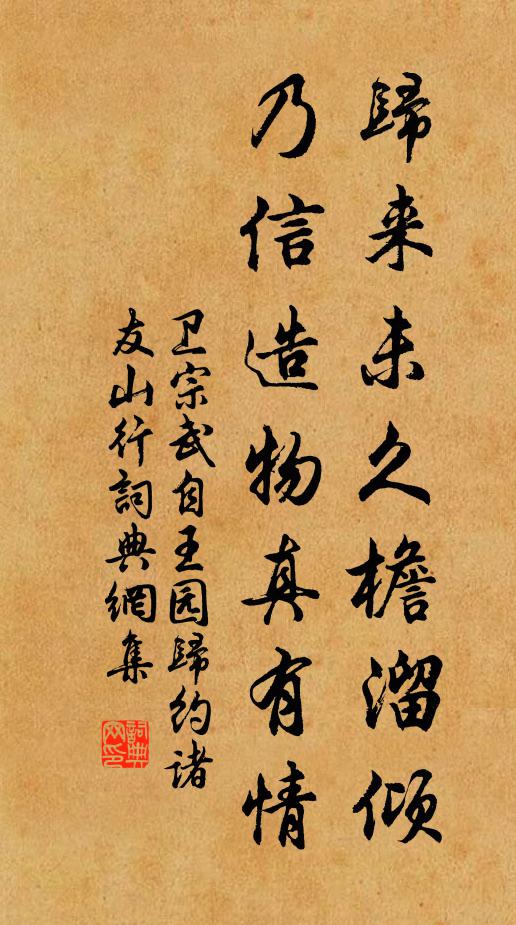 歸来未久檐溜倾
乃信造物真有情
卫宗武自王园歸约诸
友山行詞典網集
詞典網印